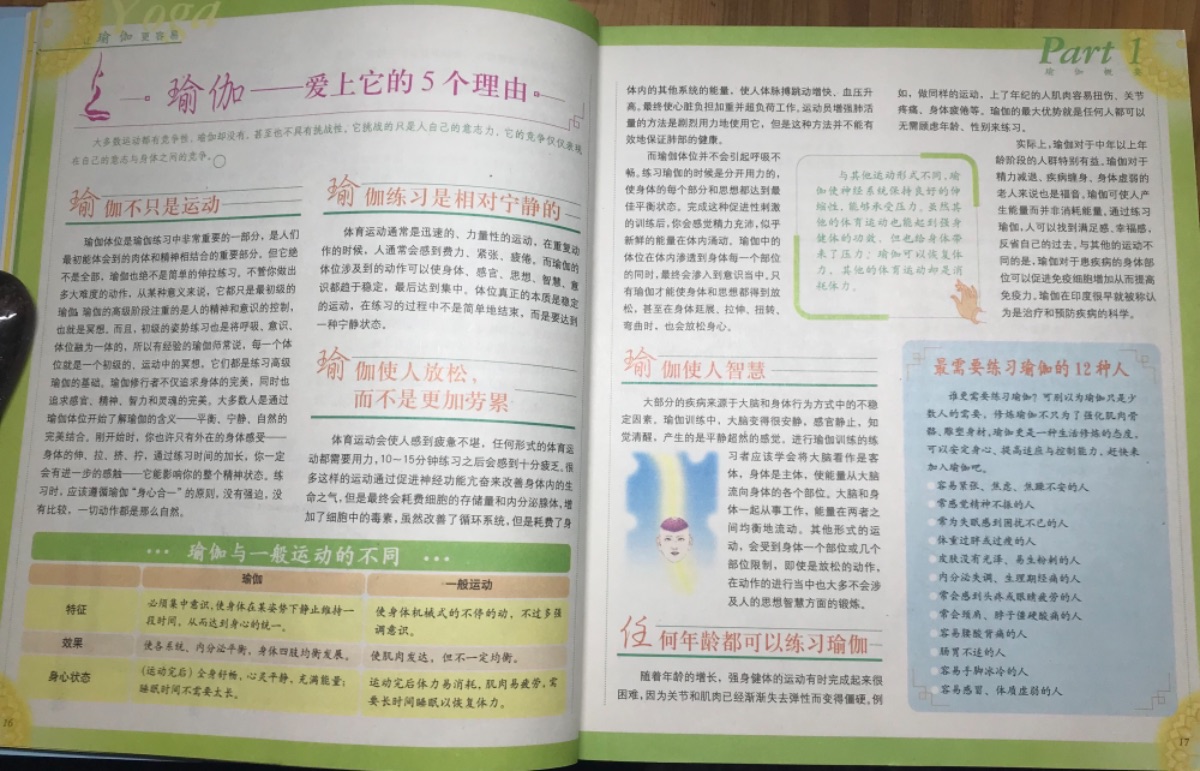 Yoga
让瑜伽更容易
瑜伽——爱上它的5个理由
大多数运动都有竞争性,瑜伽却没有,甚至也不具有挑战性,它挑战的只是人自己的意志力,它的竞争仅仅表现
在自己的意志与身体之间的竞争。
瑜伽不只是运动
瑜伽体位是瑜伽练习中非常重要的一部分,是人们
最初能体会到的肉体和精神相结合的重要部分,但它绝
不是全部,瑜伽也绝不是简单的伸拉练习,不管你做出
多大难度的动作,从某种意义来说,它都只是最初级的
瑜伽。瑜伽的高级阶段注重的是人的精神和意识的控制,
也就是冥想。而且,初级的姿势练习也是将呼吸、意识、
体位融为一体的,所以有经验的瑜伽师常说,每一个体
位就是一个初级的、运动中的冥想,它们都是练习高级
瑜伽的基础。瑜伽修行者不仅追求身体的完美,同时也
追求感官、精神、智力和灵魂的完美。大多数人是通过
瑜伽体位开始了解瑜伽的含义——平衡、宁静、自然的
完美结合。刚开始时,你也许只有外在的身体感受——
身体的伸、拉、挤、拧,通过练习时间的加长,你一定
会有进一步的感触——它能影响你的整个精神状态。练
习时,应该遵循瑜伽“身心合一”的原则,没有强迫,没
有比较,一切动作都是那么自然。
瑜伽练习是相对宁静的
体育运动通常是迅速的、力量性的运动,在重复动
作的时候,人通常会感到费力、紧张、疲倦。而瑜伽的
体位涉到的动作可以使身体、感官、思想、智慧、意
识都趋于稳定,最后达到集中。体位真正的本质是稳定
的运动,在练习的过程中不是简单地结束,而是要达到
一种宁静状态。
瑜伽使人放松,
而不是更加劳累
体育运动会使人感到疲惫不堪,任何形式的体育运
动都需要用力,10～15分钟练习之后会感到十分疲乏。很
多这样的运动通过促进神经功能亢奋来改善身体内的生
命之气,但是最终会耗费细胞的存储量和内分泌腺体,增
加了细胞中的毒素,虽然改善了循环系统,但是耗费了身
瑜伽与一般运动的不同
瑜伽 一般运动
特征 必须集中意识,使身体在某姿势下静止维持一
段时间,从而达到身心的统一。 使身体机械式的不停的动,不过多强
调意识。
效果 使各系统、内分泌平衡,身体四肢均衡发展。 使肌肉发达,但不一定均衡。
身心状态 (运动完后)全身舒畅,心灵平静、充满能量;
睡眠时间不需要太长。 运动完后体力易消耗,肌肉易疲劳,需
要长时间睡眠以恢复体力。
16
Part 1
瑜伽概
体内的其他系统的能量,使人体脉搏跳动增快、血压升
高。最终使心脏负担加重并超负荷工作。运动员增强肺活
量的方法是剧烈用力地使用它,但是这种方法并不能有
效地保证肺部的健康。
而瑜伽体位并不会引起呼吸不
畅。练习瑜伽的时候是分开用力的,
使身体的每个部分和思想都达到最
佳平衡状态。完成这种促进性刺激
的训练后,你会感觉精力充沛,似乎
新鲜的能量在体内涌动。瑜伽中的
体位在体内渗透到身体每一个部位
的同时,最终会渗入到意识当中。只
有瑜伽才能使身体和思想都得到放
松,甚至在身体延展、拉伸、扭转、
弯曲时,也会放松身心。
与其他运动形式不同,瑜
伽使神经系统保持良好的伸
缩性,能够承受压力。虽然其
他的体育运动也能起到强身
健体的功效,但也给身体带
来了压力;瑜伽可以恢复体
力,其他的体育运动却是消
耗体力。
瑜伽使人智慧
大部分的疾病来源于大脑和身体行为方式中的不稳
定因素,瑜伽训练中,大脑变得很安静,感官静止,知
觉清醒,产生的是平静超然的感觉。进行瑜伽训练的练
习者应该学会将大脑看作是客
体,身体是主体,使能量从大脑
流向身体的各个部位。大脑和身
体一起从事工作,能量在两者之
间均衡地流动。其他形式的运
动,会受到身体一个部位或几个
部位限制,即使是放松的动作。
在动作的进行当中也大多不会涉
及人的思想智慧方面的锻炼。
任何年龄都可以练习瑜伽
随着年龄的增长,强身健体的运动有时完成起来很
困难,因为关节和肌肉已经渐渐失去弹性而变得僵硬。例
如,做同样的运动,上了年纪的人肌肉容易扭伤、关节
疼痛、身体疲倦等。瑜伽的最大优势就是任何人都可以
无需顾虑年龄、性别来练习。
实际上,瑜伽对于中年以上年
龄阶段的人群特别有益。瑜伽对于
精力减退、疾病缠身、身体虚弱的
老人来说也是福音,瑜伽可使人产
生能量而并非消耗能量,通过练习
瑜伽,人可以找到满足感、幸福感,
反省自己的过去,与其他的运动不
同的是,瑜伽对于患疾病的身体部
位可以促进免疫细胞增加从而提高
免疫力。瑜伽在印度很早就被称认
为是治疗和预防疾病的科学。
最需要练习瑜伽的12种人
谁更需要练习瑜伽?可别以为瑜伽只是少
数人的需要,修炼瑜伽不只为了强化肌肉骨
骼、雕塑身材,瑜伽更是一种生活修炼的态度,
可以安定身心、提高适应与控制能力,赶快来
加入瑜伽吧。
容易紧张、焦虑、焦躁不安的人
常感觉精神不振的人
常为失眠感到困扰不已的人
体重过胖或过瘦的人
皮肤没有光泽、易生粉刺的人
内分泌失调、生理期经痛的人
常会感到头疼或眼睛疲劳的人
常会颈肩、脖子僵硬酸痛的人
容易腰酸背痛的人
肠胃不适的人
容易手脚冰冷的人
容易感冒、体质虚弱的人
17